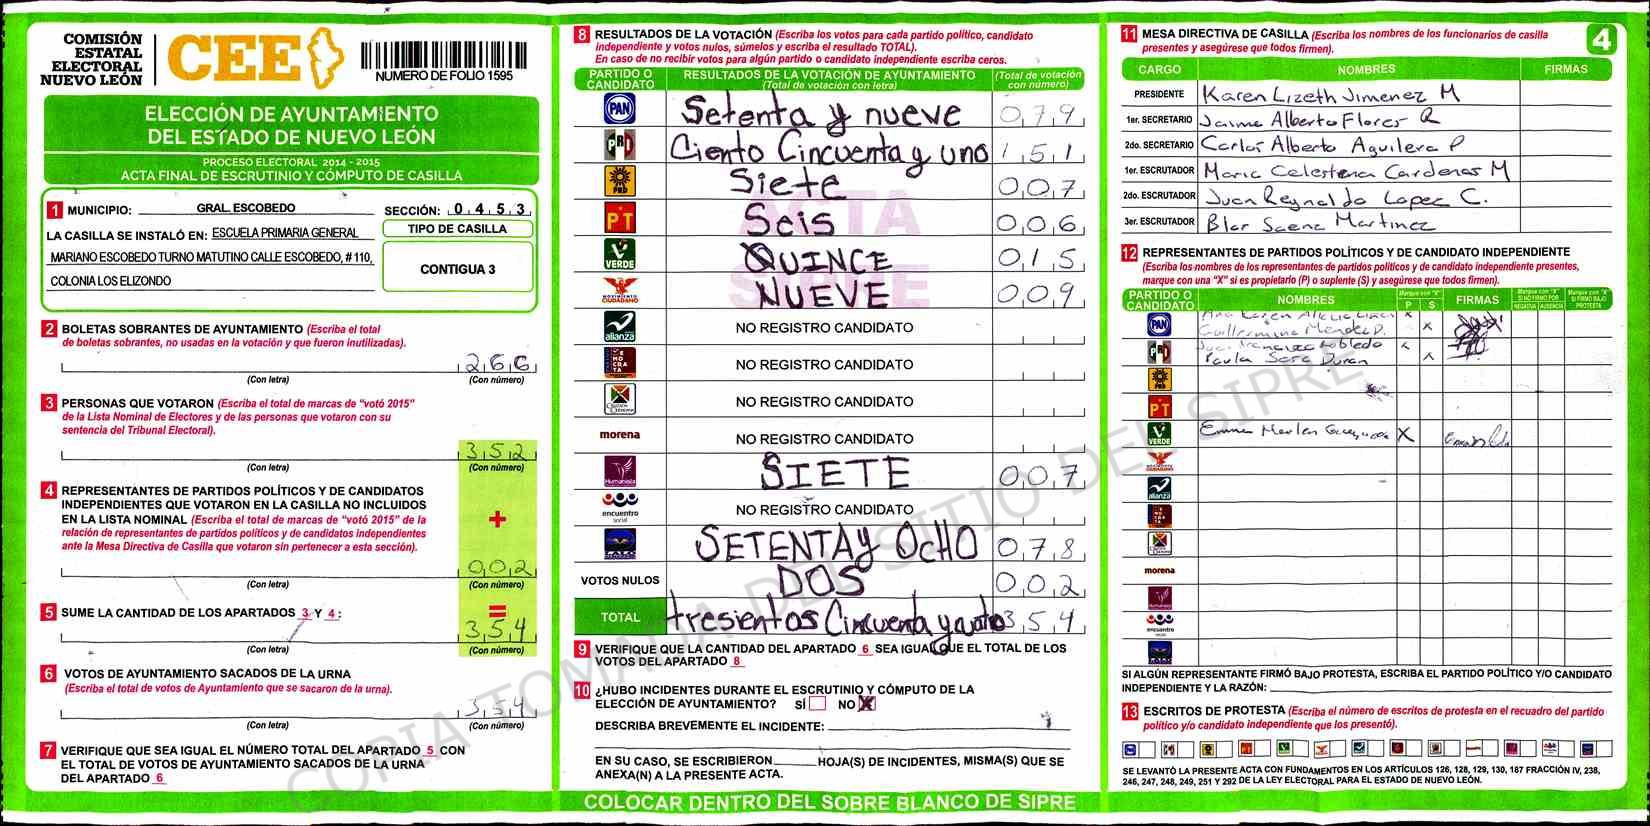 COMISIÓN
ESTATAL
ELECTORAL
NUEVO LEÓN
CEE
NUMERO DE FOLIO 1595
ELECCIÓN DE AYUNTAMIENTO
DEL ESTADO DE NUEVO LEÓN
PROCESO ELECTORAL 2014 - 2015
ACTA FINAL DE ESCRUTINIO Y CÓMPUTO DE CASILLA
1 MUNICIPIO: GRAL. ESCOBEDO SECCIÓN: 0 4 5 3
LA CASILLA SE INSTALÓ EN: ESCUELA PRIMARIA GENERAL
MARIANO ESCOBEDO TURNO MATUTINO CALLE ESCOBEDO, # 110,
COLONIA LOS ELIZONDO
TIPO DE CASILLA
CONTIGUA 3
2 BOLETAS SOBRANTES DE AYUNTAMIENTO (Escriba el total
de boletas sobrantes, no usadas en la votación y que fueron inutilizadas).
266
(Con letra) (Con número)
3 PERSONAS QUE VOTARON (Escriba el total de marcas de "votó 2015"
de la Lista Nominal de Electores y de las personas que votaron con su
sentencia del Tribunal Electoral).
352
(Con letra) (Con número)
4 REPRESENTANTES DE PARTIDOS POLÍTICOS Y DE CANDIDATOS
INDEPENDIENTES QUE VOTARON EN LA CASILLA NO INCLUIDOS
EN LA LISTA NOMINAL (Escriba el total de marcas de "votó 2015" de la
relación de representantes de partidos políticos y de candidatos independientes
ante la Mesa Directiva de Casilla que votaron sin pertenecer a esta sección).
+
002
(Con letra) (Con número)
5 SUME LA CANTIDAD DE LOS APARTADOS 3 Y 4:
=
354
(Con letra) (Con número)
6 VOTOS DE AYUNTAMIENTO SACADOS DE LA URNA
(Escriba el total de votos de Ayuntamiento que se sacaron de la urna).
354
(Con letra) (Con número)
7 VERIFIQUE QUE SEA IGUAL EL NÚMERO TOTAL DEL APARTADO 5 CON
EL TOTAL DE VOTOS DE AYUNTAMIENTO SACADOS DE LA URNA
DEL APARTADO 6
8 RESULTADOS DE LA VOTACIÓN (Escriba los votos para cada partido político, candidato
independiente y votos nulos, súmelos y escriba el resultado TOTAL).
En caso de no recibir votos para algún partido o candidato independiente escriba ceros.
PARTIDO O CANDIDATO RESULTADOS DE LA VOTACIÓN DE AYUNTAMIENTO (Total de votación con letra) (Total de votación con número)
PAN Setenta y nueve 079
PRD Ciento Cincuenta y uno 151
PRD Siete 007
PT Seis 006
VERDE QUINCE 015
MOVIMIENTO CIUDADANO NUEVE 009
alianza NO REGISTRO CANDIDATO
DEMOCRATA NO REGISTRO CANDIDATO
NO REGISTRO CANDIDATO
morena NO REGISTRO CANDIDATO
Humanista SIETE 007
encuentro social NO REGISTRO CANDIDATO
SETENTA y OCHO 078
VOTOS NULOS DOS 002
TOTAL tresientos Cincuenta y cuatro 354
ACTA
SIPRE
9 VERIFIQUE QUE LA CANTIDAD DEL APARTADO 6 SEA IGUAL QUE EL TOTAL DE LOS
VOTOS DEL APARTADO 8
10 ¿HUBO INCIDENTES DURANTE EL ESCRUTINIO Y CÓMPUTO DE LA
ELECCIÓN DE AYUNTAMIENTO? SÍ NO X
DESCRIBA BREVEMENTE EL INCIDENTE:
EN SU CASO, SE ESCRIBIERON HOJA(S) DE INCIDENTES, MISMA(S) QUE SE
ANEXA(N) A LA PRESENTE ACTA.
COLOCAR DENTRO DEL SOBRE BLANCO DE SIPRE
11 MESA DIRECTIVA DE CASILLA (Escriba los nombres de los funcionarios de casilla
presentes y asegúrese que todos firmen).
4
CARGO NOMBRES FIRMAS
PRESIDENTE Karen Lizeth Jimenez M
1er. SECRETARIO Jaime Alberto Flores R
2do. SECRETARIO Carlos Alberto Aguilera P
1er. ESCRUTADOR Maria Celestena Cardenas M
2do. ESCRUTADOR Juan Reynaldo Lopez C.
3er. ESCRUTADOR Blar Saenz Martinez
12 REPRESENTANTES DE PARTIDOS POLÍTICOS Y DE CANDIDATO INDEPENDIENTE
(Escriba los nombres de los representantes de partidos políticos y de candidato independiente presentes,
marque con una "X" si es propietario (P) o suplente (S) y asegúrese que todos firmen).
PARTIDO O CANDIDATO NOMBRES Marque con "X" P S FIRMAS Marque con "X" SI NO FIRMÓ POR NEGATIVA AUSENCIA Marque con "X" SI FIRMÓ BAJO PROTESTA
PAN Ana Karen x
Guillermina Mendez P. x
PRI Robledo x
Paula Sosa Duran x
PRD
PT
VERDE Emma Marlen X
alianza
morena
Humanista
encuentro social
SI ALGÚN REPRESENTANTE FIRMÓ BAJO PROTESTA, ESCRIBA EL PARTIDO POLÍTICO Y/O CANDIDATO
INDEPENDIENTE Y LA RAZÓN:
13 ESCRITOS DE PROTESTA (Escriba el número de escritos de protesta en el recuadro del partido
político y/o candidato independiente que los presentó).
SE LEVANTÓ LA PRESENTE ACTA CON FUNDAMENTOS EN LOS ARTÍCULOS 126, 128, 129, 130, 187 FRACCIÓN IV, 238,
246, 247, 248, 249, 251 Y 292 DE LA LEY ELECTORAL PARA EL ESTADO DE NUEVO LEÓN.
COPIA TOMADA DEL SITIO DEL SIPRE